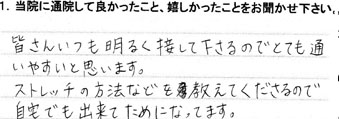 1. 当院に通院して良かったこと、嬉しかったことをお聞かせ下さい。
皆さんいつも明るく接して下さるのでとても通
いやすいと思います。
ストレッチの方法などを教えてくださるので
自宅でも出来てためになってます。